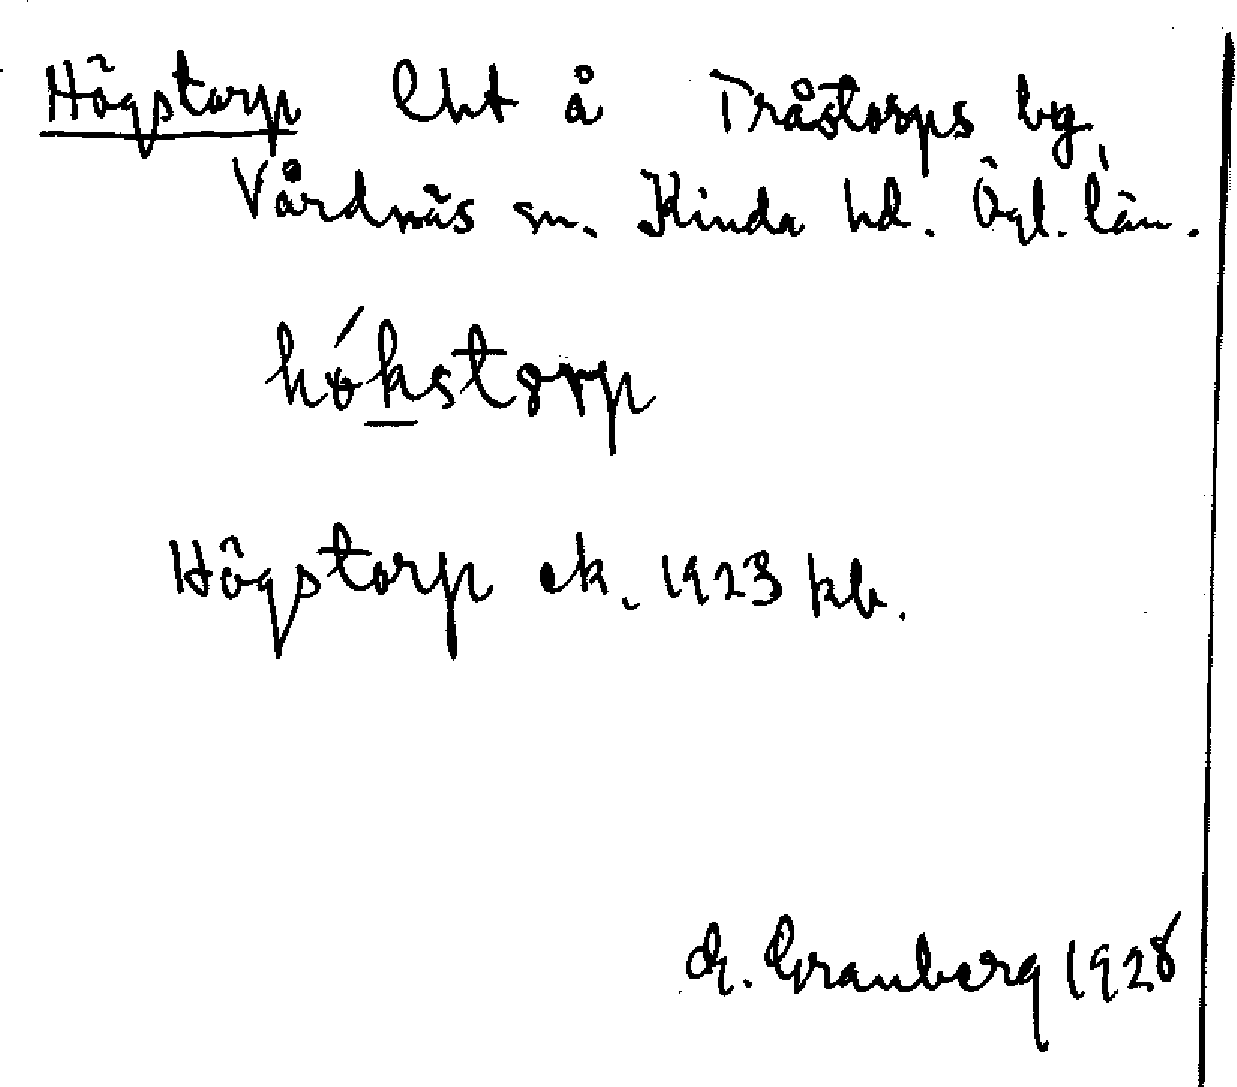 Högstorp lht å Tråstorps by
Vårdnäs sn. Kinda hd. Ögl. län.
hǿkstorp
Högstorp ek. 1923 kb.
G. Granberg 1928